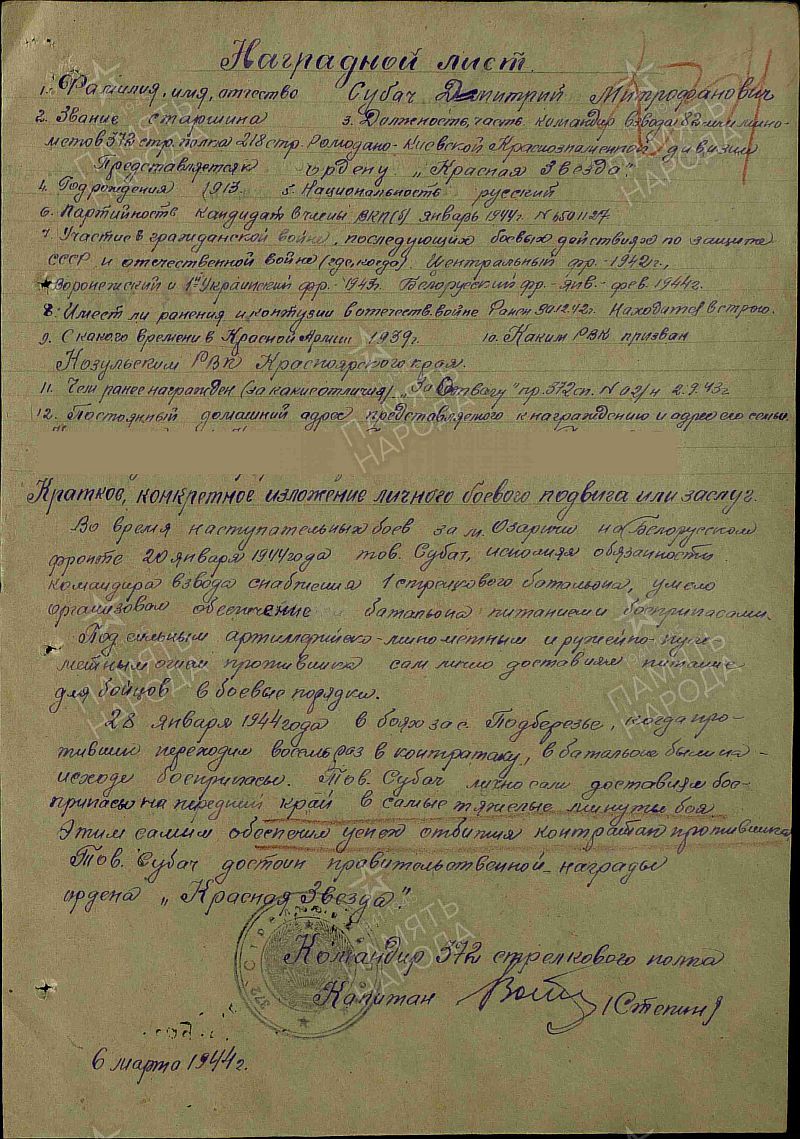 Наградной лист.
1. Фамилия, имя, отчество Субач Дмитрий Митрофанович
2. Звание старшина 3. Должность, часть командир взвода 82 м/м мино-
метов 372 стр. полка 218 стр. Ромодано-Киевской Краснознаменной дивизии
Представляется к ордену „Красная Звезда".
4. Год рождения 1913. 5. Национальность русский
6. Партийность кандидат в члены ВКП(б) январь 1944г. N 6501127
7. Участие в гражданской войне, последующих боевых действиях по защите
СССР и отечественной войне (где, когда) Центральный фр.-1942г.,
Воронежский и 1й Украинский фр.-1943г. Белорусский фр.-янв.-фев. 1944г.
8. Имеет ли ранения и контузии в отечеств. войне Ранен 30.12.42г. Находится в строю.
9. С какого времени в Красной Армии 1939г. 10. Каким РВК призван
Козульским РВК Красноярского края.
11. Чем ранее награжден (за какие отличия) „За Отвагу" пр. 372 сп. N 02/н 2.9.43г
12. Постоянный домашний адрес представляемого к награждению и адрес его семьи.
Краткое, конкретное изложение личного боевого подвига или заслуг.
Во время наступательных боев за м. Озаричи на Белорусском
фронте 20 января 1944 года тов. Субач, исполняя обязанности
командира взвода снабжения 1 стрелкового батальона, умело
организовал обеспечение батальона питанием и боеприпасами.
Под сильным артиллерийско-минометным и ружейно-пуле-
метным огнем противника сам лично доставлял питание
для бойцов в боевые порядки.
28 января 1944 года в боях за с. Подберезье, когда про-
тивник переходил восемь раз в контратаку, в батальоне были на-
исходе боеприпасы. Тов. Субач лично сам доставлял бое-
припасы на передний край в самые тяжелые минуты боя.
Этим самим обеспечил успех отбития контратак противника
Тов. Субач достоин правительственной награды
ордена „Красная Звезда".
Командир 372 стрелкового полка
Капитан (Степин)
6 марта 1944г.
372 Стрелковый
ПАМЯТЬ НАРОДА